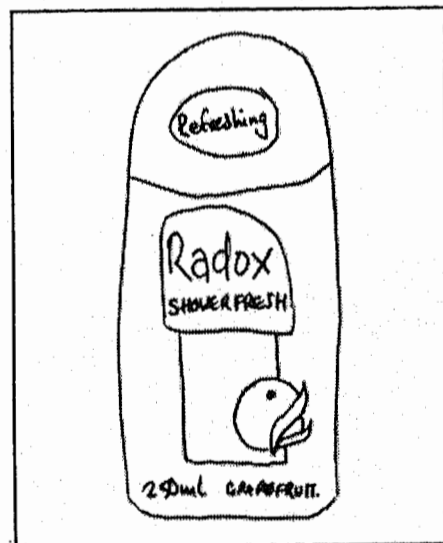 Refreshing
Radox
SHOWER FRESH
250ml GRAPEFRUIT.